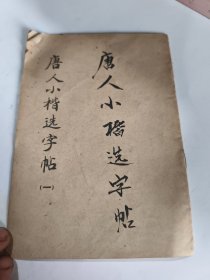 唐人小楷选字帖
唐人小楷选字帖
(一)